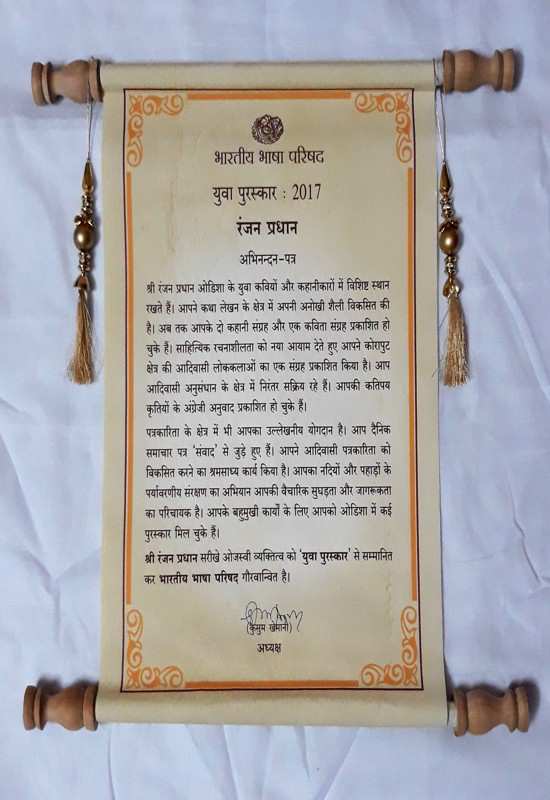 भारतीय भाषा परिषद
युवा पुरस्कार : 2017
रंजन प्रधान
अभिनन्दन-पत्र
श्री रंजन प्रधान ओडिशा के युवा कवियों और कहानीकारों में विशिष्ट स्थान
रखते हैं। आपने कथा लेखन के क्षेत्र में अपनी अनोखी शैली विकसित की
है। अब तक आपके दो कहानी संग्रह और एक कविता संग्रह प्रकाशित हो
चुके हैं। साहित्यिक रचनाशीलता को नया आयाम देते हुए आपने कोरापुट
क्षेत्र की आदिवासी लोककलाओं का एक संग्रह प्रकाशित किया है। आप
आदिवासी अनुसंधान के क्षेत्र में निरंतर सक्रिय रहे हैं। आपकी कतिपय
कृतियों के अंग्रेजी अनुवाद प्रकाशित हो चुके हैं।
पत्रकारिता के क्षेत्र में भी आपका उल्लेखनीय योगदान है। आप दैनिक
समाचार पत्र 'संवाद' से जुड़े हुए हैं। आपने आदिवासी पत्रकारिता को
विकसित करने का श्रमसाध्य कार्य किया है। आपका नदियों और पहाड़ों के
पर्यावरणीय संरक्षण का अभियान आपकी वैचारिक सुघड़ता और जागरूकता
का परिचायक है। आपके बहुमुखी कार्यों के लिए आपको ओडिशा में कई
पुरस्कार मिल चुके हैं।
श्री रंजन प्रधान सरीखे ओजस्वी व्यक्तित्व को 'युवा पुरस्कार' से सम्मानित
कर भारतीय भाषा परिषद गौरवान्वित है।
(कुसुम खेमानी)
अध्यक्ष